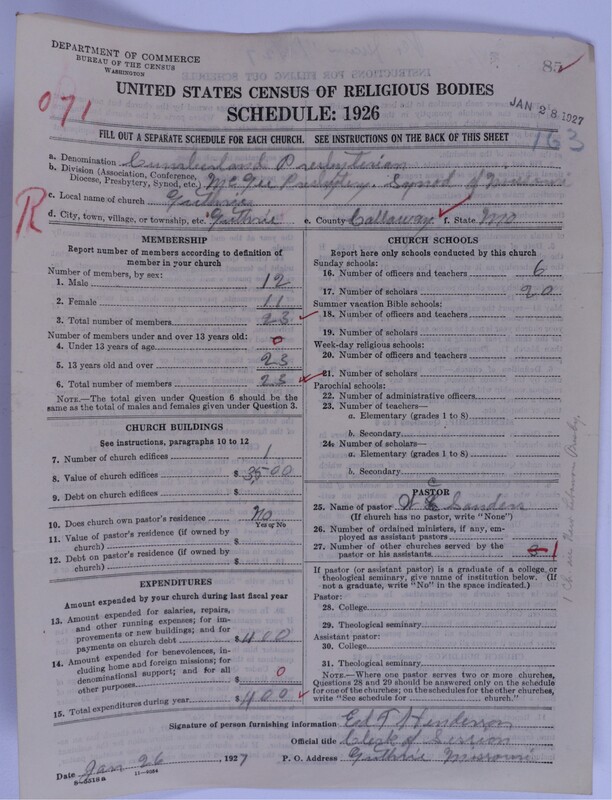 DEPARTMENT OF COMMERCE
BUREAU OF THE CENSUS
WASHINGTON
85
UNITED STATES CENSUS OF RELIGIOUS BODIES
SCHEDULE: 1926
071
JAN 28 1927
163
FILL OUT A SEPARATE SCHEDULE FOR EACH CHURCH. SEE INSTRUCTIONS ON THE BACK OF THIS SHEET
R
a. Denomination Cumberland Presbyterian
b. Division (Association, Conference, Diocese, Presbytery, Synod, etc.) McGee Presbytery. Synod of Missouri
c. Local name of church Guthrie
d. City, town, village, or township, etc. Guthrie e. County Callaway f. State Mo
MEMBERSHIP
Report number of members according to definition of
member in your church
Number of members, by sex:
1. Male 12
2. Female 11
3. Total number of members 23
Number of members under and over 13 years old:
4. Under 13 years of age 0
5. 13 years old and over 23
6. Total number of members 23
NOTE.—The total given under Question 6 should be
same as the total of males and females given under Question 3.
CHURCH BUILDINGS
See instructions, paragraphs 10 to 12
7. Number of church edifices 1
8. Value of church edifices $3500
9. Debt on church edifices $
10. Does church own pastor's residence No
Yes or No
11. Value of pastor's residence (if owned by
church) $
12. Debt on pastor's residence (if owned by
church) $
EXPENDITURES
Amount expended by your church during last fiscal year
13. Amount expended for salaries, repairs,
and other running expenses; for im-
provements or new buildings; and for
payments on church debt $400
14. Amount expended for benevolences, in-
cluding home and foreign missions; for
denominational support; and for all
other purposes $ 0
15. Total expenditures during year $400
CHURCH SCHOOLS
Report here only schools conducted by this church
Sunday schools:
16. Number of officers and teachers 6
17. Number of scholars 20
Summer vacation Bible schools:
18. Number of officers and teachers
19. Number of scholars
Week-day religious schools:
20. Number of officers and teachers
21. Number of scholars
Parochial schools:
22. Number of administrative officers
23. Number of teachers—
a. Elementary (grades 1 to 8)
b. Secondary
24. Number of scholars—
a. Elementary (grades 1 to 8)
b. Secondary
PASTOR
25. Name of pastor Sanders
(If church has no pastor, write "None")
26. Number of ordained ministers, if any, em-
ployed as assistant pastors
27. Number of other churches served by the
pastor or his assistants 1
If pastor (or assistant pastor) is a graduate of a college or
theological seminary, give name of institution below. (If
not a graduate, write "No" in the space indicated.)
Pastor:
28. College
29. Theological seminary
Assistant pastor:
30. College
31. Theological seminary
NOTE.—Where one pastor serves two or more churches,
Questions 28 and 29 should be answered only on the schedule
for one of the churches; on the schedules for the other churches,
write "See schedule for church."
1 Ch. in New Lebanon Presby.
Signature of person furnishing information Ed T Henderson
Official title Clerk of Session
Date Jan 26, 1927 P. O. Address Guthrie Missouri
8-5518a 11-9224